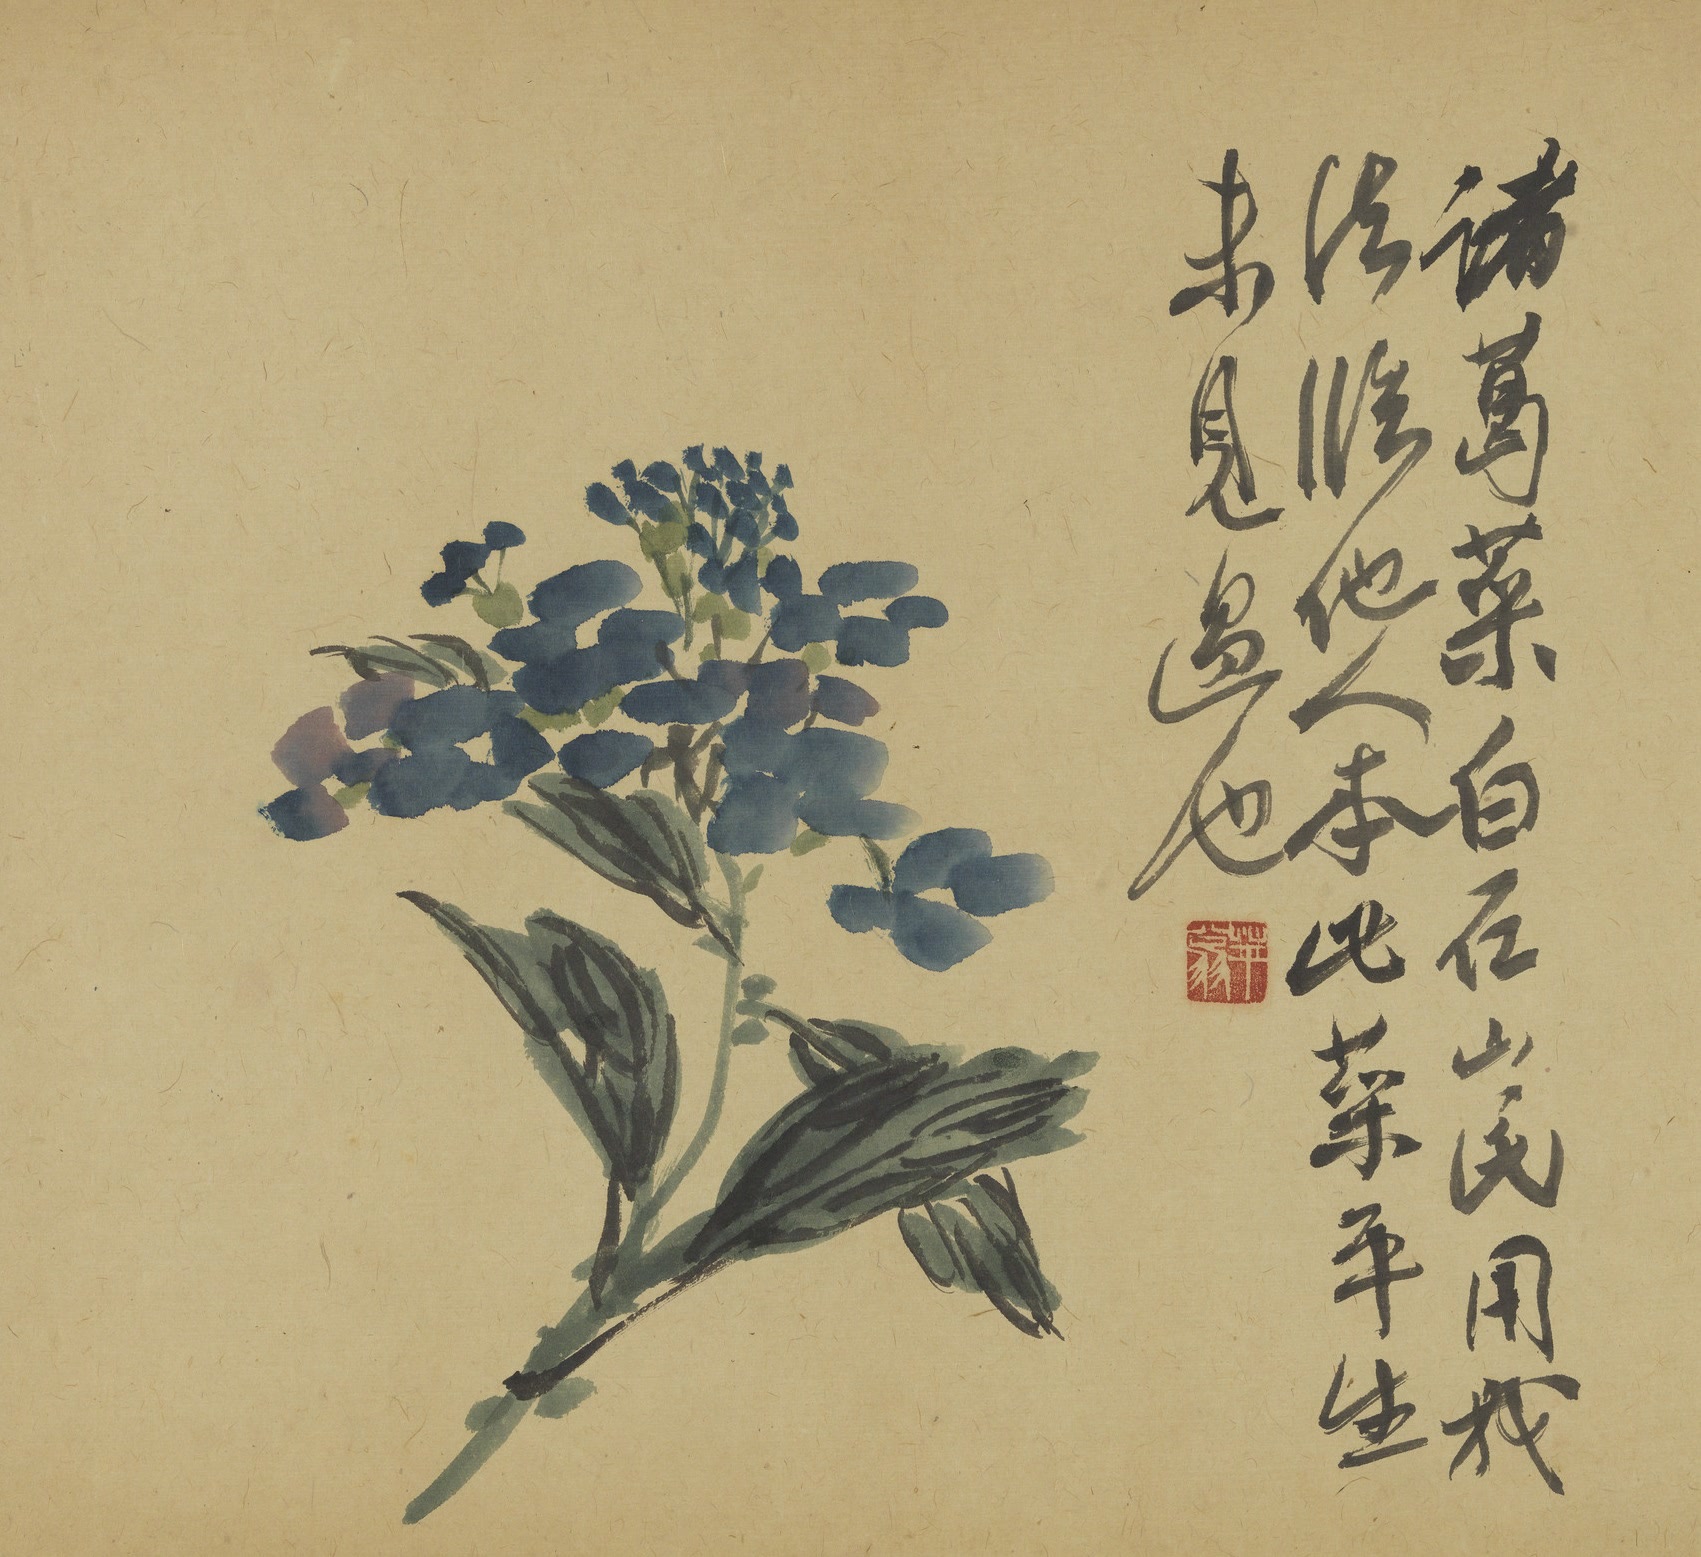 諸葛菜白石山民用我
法臨他人本此菜平生
未見過也
萍翁